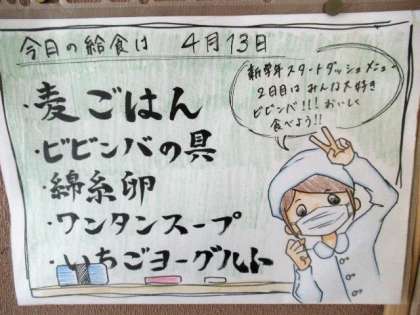 今日の給食は 4月13日
・麦ごはん
・ビビンバの具
・綿糸卵
・ワンタンスープ
・いちごヨーグルト
新学年スタートダッシュメニュー
2日目はみんな大好き
ビビンバ!!!おいしく
食べよう!!